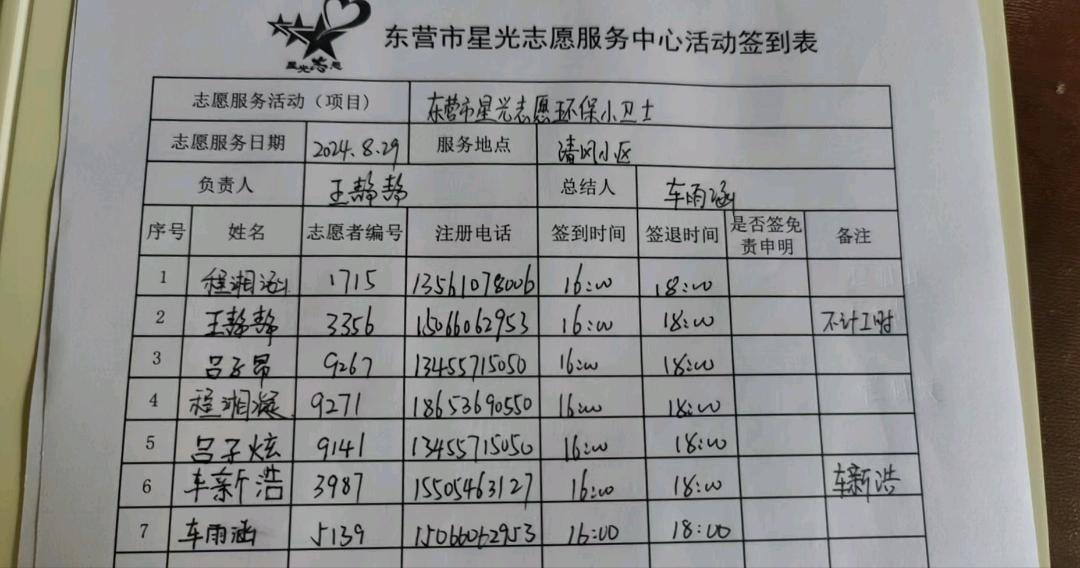 星光志愿
东营市星光志愿服务中心活动签到表
志愿服务活动（项目） 东营市星光志愿环保小卫士
志愿服务日期 2024.8.29 服务地点 清风小区
负责人 王静静 总结人 车雨涵
序号 姓名 志愿者编号 注册电话 签到时间 签退时间 是否签免责申明 备注
1 程湘涵 1715 13561078006 16:00 18:00
2 王静静 3356 15066062953 16:00 18:00 不计工时
3 吕子昂 9267 13455715050 16:00 18:00
4 程湘凝 9271 18653690550 16:00 18:00
5 吕子炫 9141 13455715050 16:00 18:00
6 车新浩 3987 15505463127 16:00 18:00 车新浩
7 车雨涵 5139 15066062953 16:00 18:00